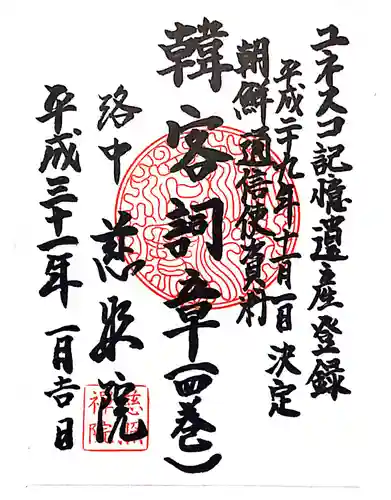 ユネスコ記憶遺産登録
平成二十九年十一月一日決定
朝鮮通信使資料
韓客詞章(四巻)
洛中 慈照院
平成三十一年一月吉日
慈照
禅院